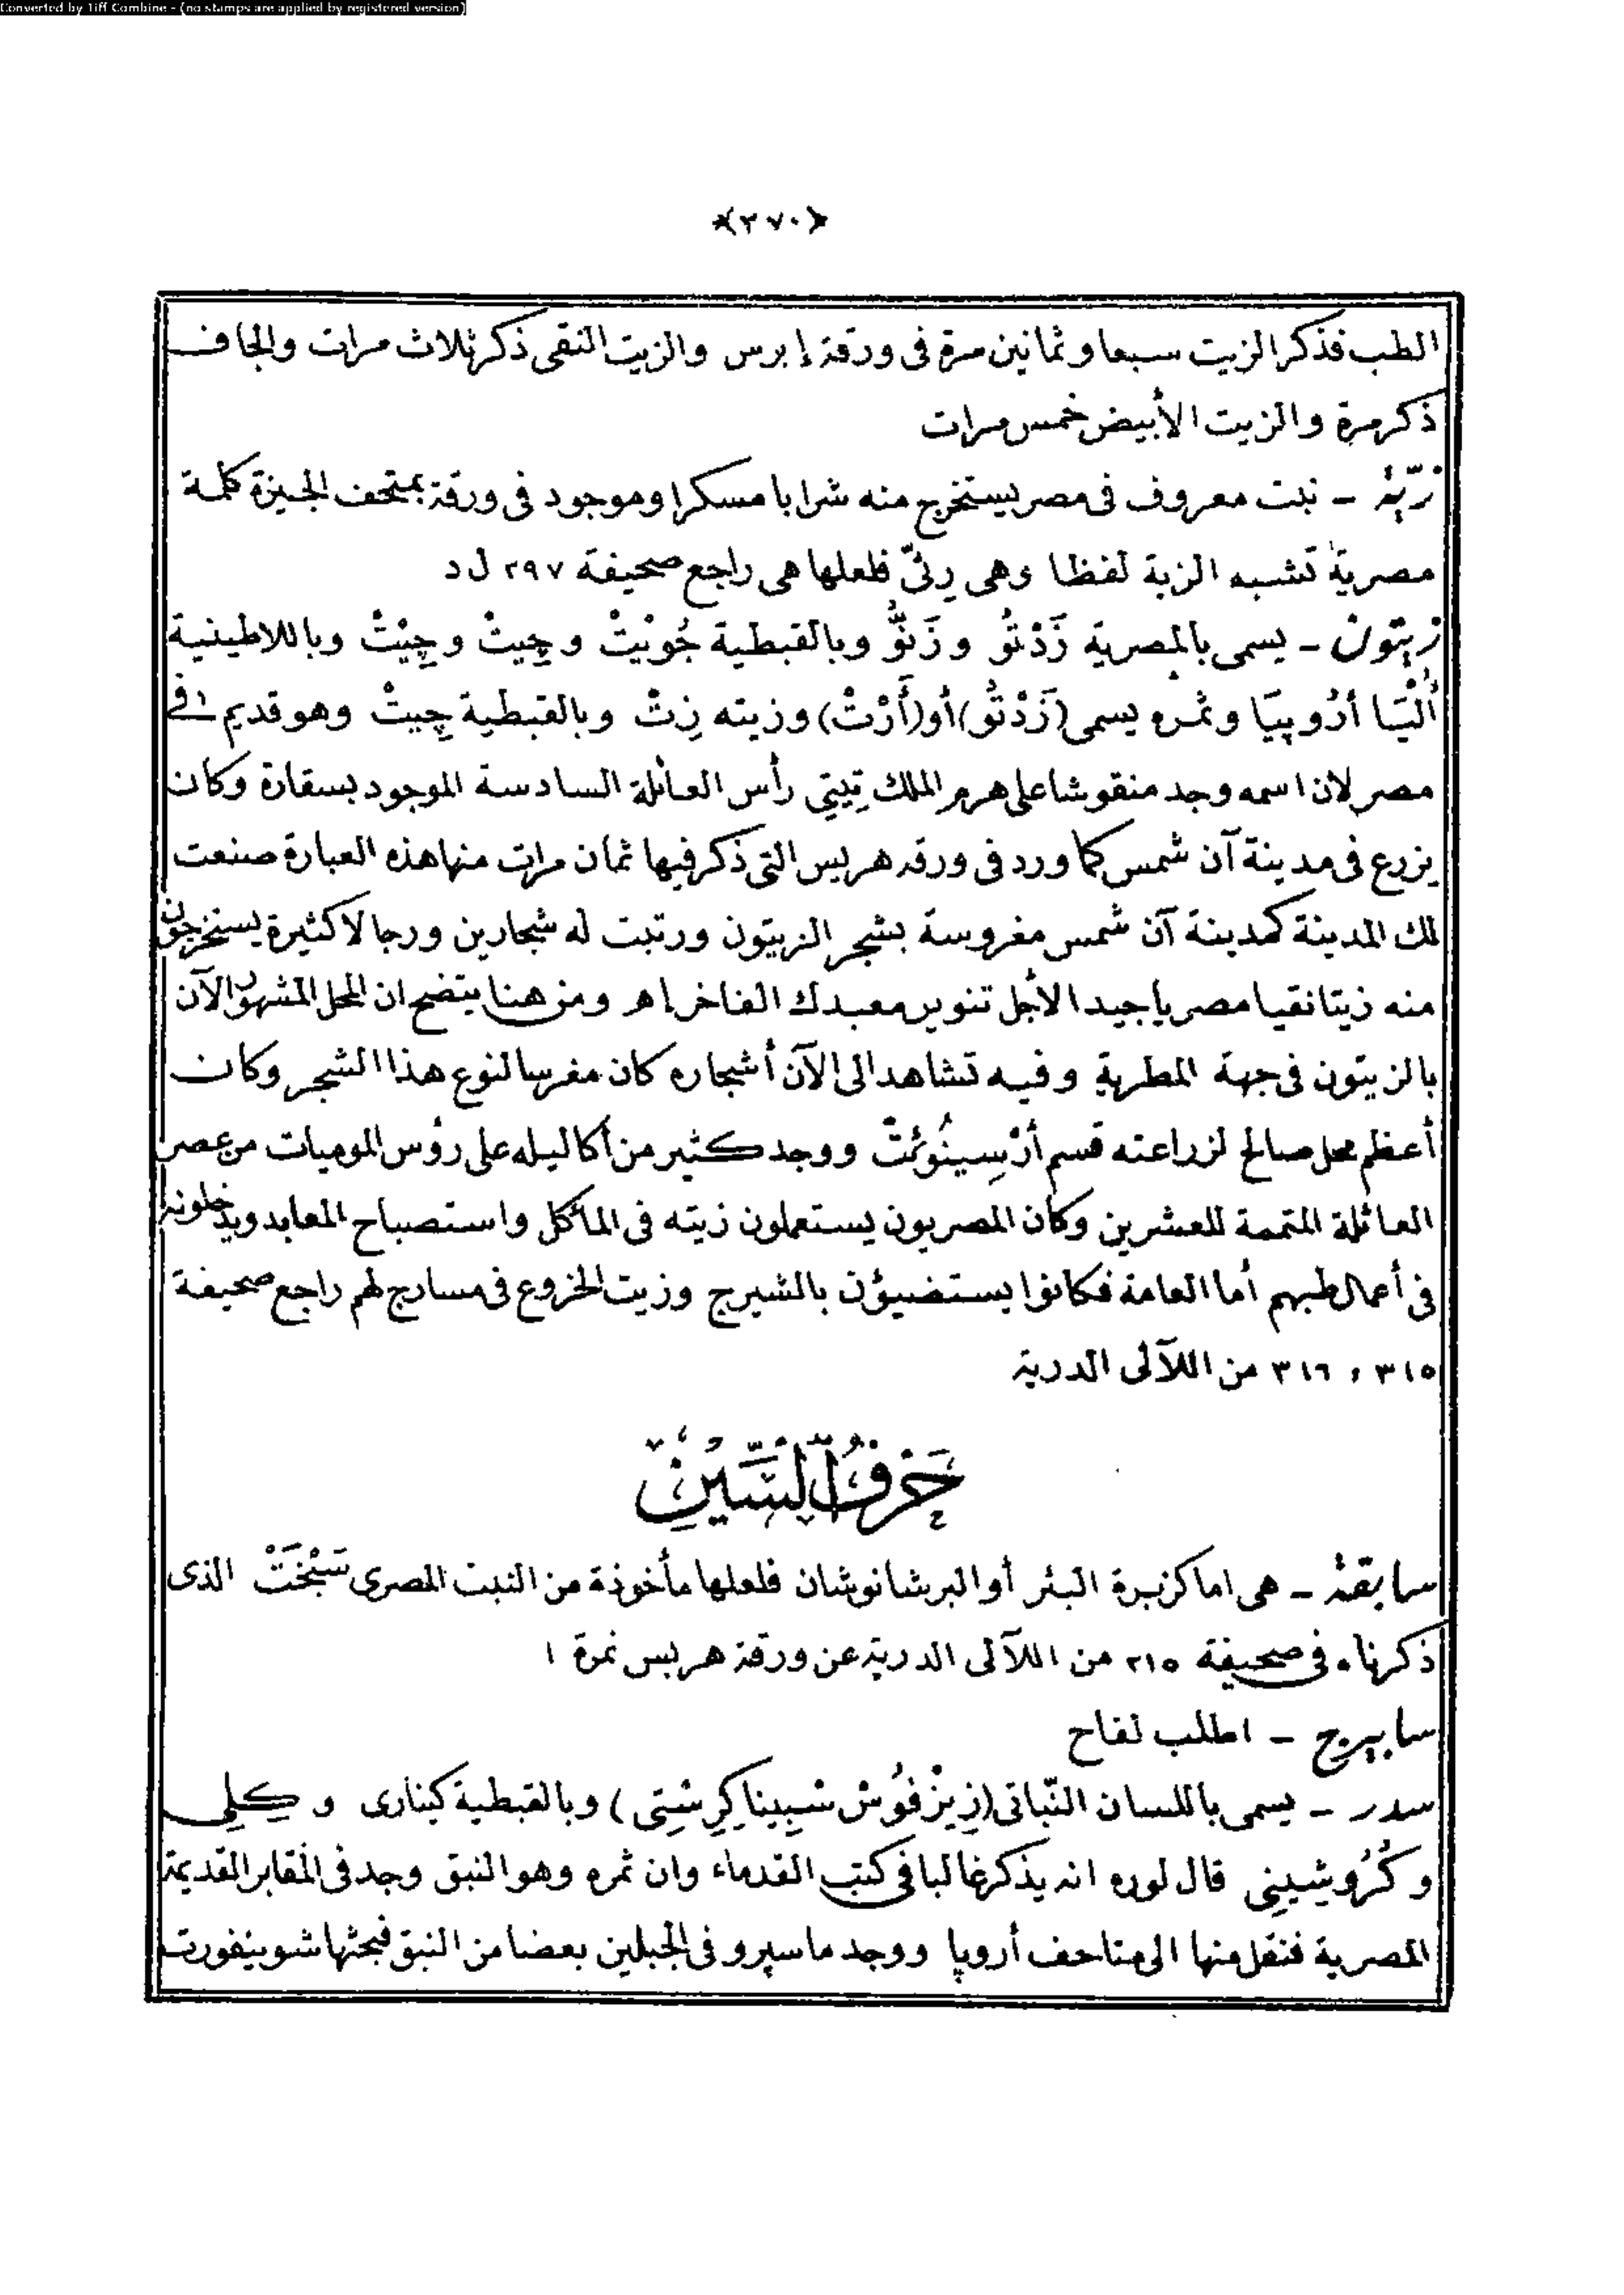 Converted by Tiff Combine - (no stamps are applied by registered version)
﴿٢٧٠﴾
الطب فذكر الزيت سبعا وثمانين مرة فى ورقة إبرس والزيت النقى ذكر ثلاث مرات والجاف
ذكر مرة والزيت الأبيض خمس مرات
زبّة - نبت معروف فى مصر يستخرج منه شرابا مسكرا وموجود فى ورقة بمتحف الجيزة كلمة
مصرية تشبه الزبة لفظا وهى فلعلها هى راجع صحيفة ٢٩٧ ل د
زيتون - يسمى بالمصرية زَدْتُو وزَتُّو وبالقبطية جُوِيْتْ وچِيتْ وچِيْتْ وباللاطينية
أُلْيَا أرُوپِيَا وثمره يسمى (زَدْتُو) أو (أَرْتْ) وزيته زِتْ وبالقبطية چِيتْ وهو قديم فى
مصر لان اسمه وجد منقوشا على هرم الملك تِيتِي رأس العائلة السادسة الموجود بسقارة وكان
يزرع فى مدينة آن شمس كما ورد فى ورقة هريس التى ذكر فيها ثمان مرات منها هذه العبارة صنعت
لك المدينة كمدينة آن شمس مغروسة بشجر الزيتون ورتبت له شجارين ورجالا كثيرة يستخرجون
منه زيتا نقيا مصريا جيدا لأجل تنوير معبدك الفاخر إهـ ومن هنا يتضح ان المحل المشهور الآن
بالزيتون فى جهة المطرية وفيه تشاهد الى الآن أشجاره كان مغرسا لنوع هذا الشجر وكان
أعظم محل صالح لزراعته قسم أرْسِينُوئِتْ ووجد كثير من أكاليله على رؤس الموميات من عصر
العائلة المتممة للعشرين وكان المصريون يستعملون زيته فى المآكل واستصباح المعابد ويدخلونه
فى أعمال طبهم أما العامة فكانوا يستضيؤن بالشيرج وزيت الخروع فى مسارج لهم راجع صحيفة
٣١٥ و ٣١٦ من اللآلى الدرية
حَرْفُ السِّينِ
سابقة - هى اما كزبرة البئر أو البرشانوشان فلعلها مأخوذة من النبت المصرى سَبْخَتْ الذى
ذكرناه فى صحيفة ٢١٥ من اللآلى الدرية عن ورقة هريس نمرة ١
سابيرج - اطلب لفاح
سدر - يسمى باللسان النّباتى (زِيزْفُوسْ سْبِينَا كِرِسْتِى) وبالقبطية كينارى و كِلِى
وكُرُوشِينِى قال لوره انه يذكر غالبا فى كتب القدماء وان ثمره وهو النبق وجد فى المقابر القديمة
المصرية فنقل منها الى متاحف أروپا ووجد ماسپرو فى الجبلين بعضا من النبق فبحثها شوينفورت